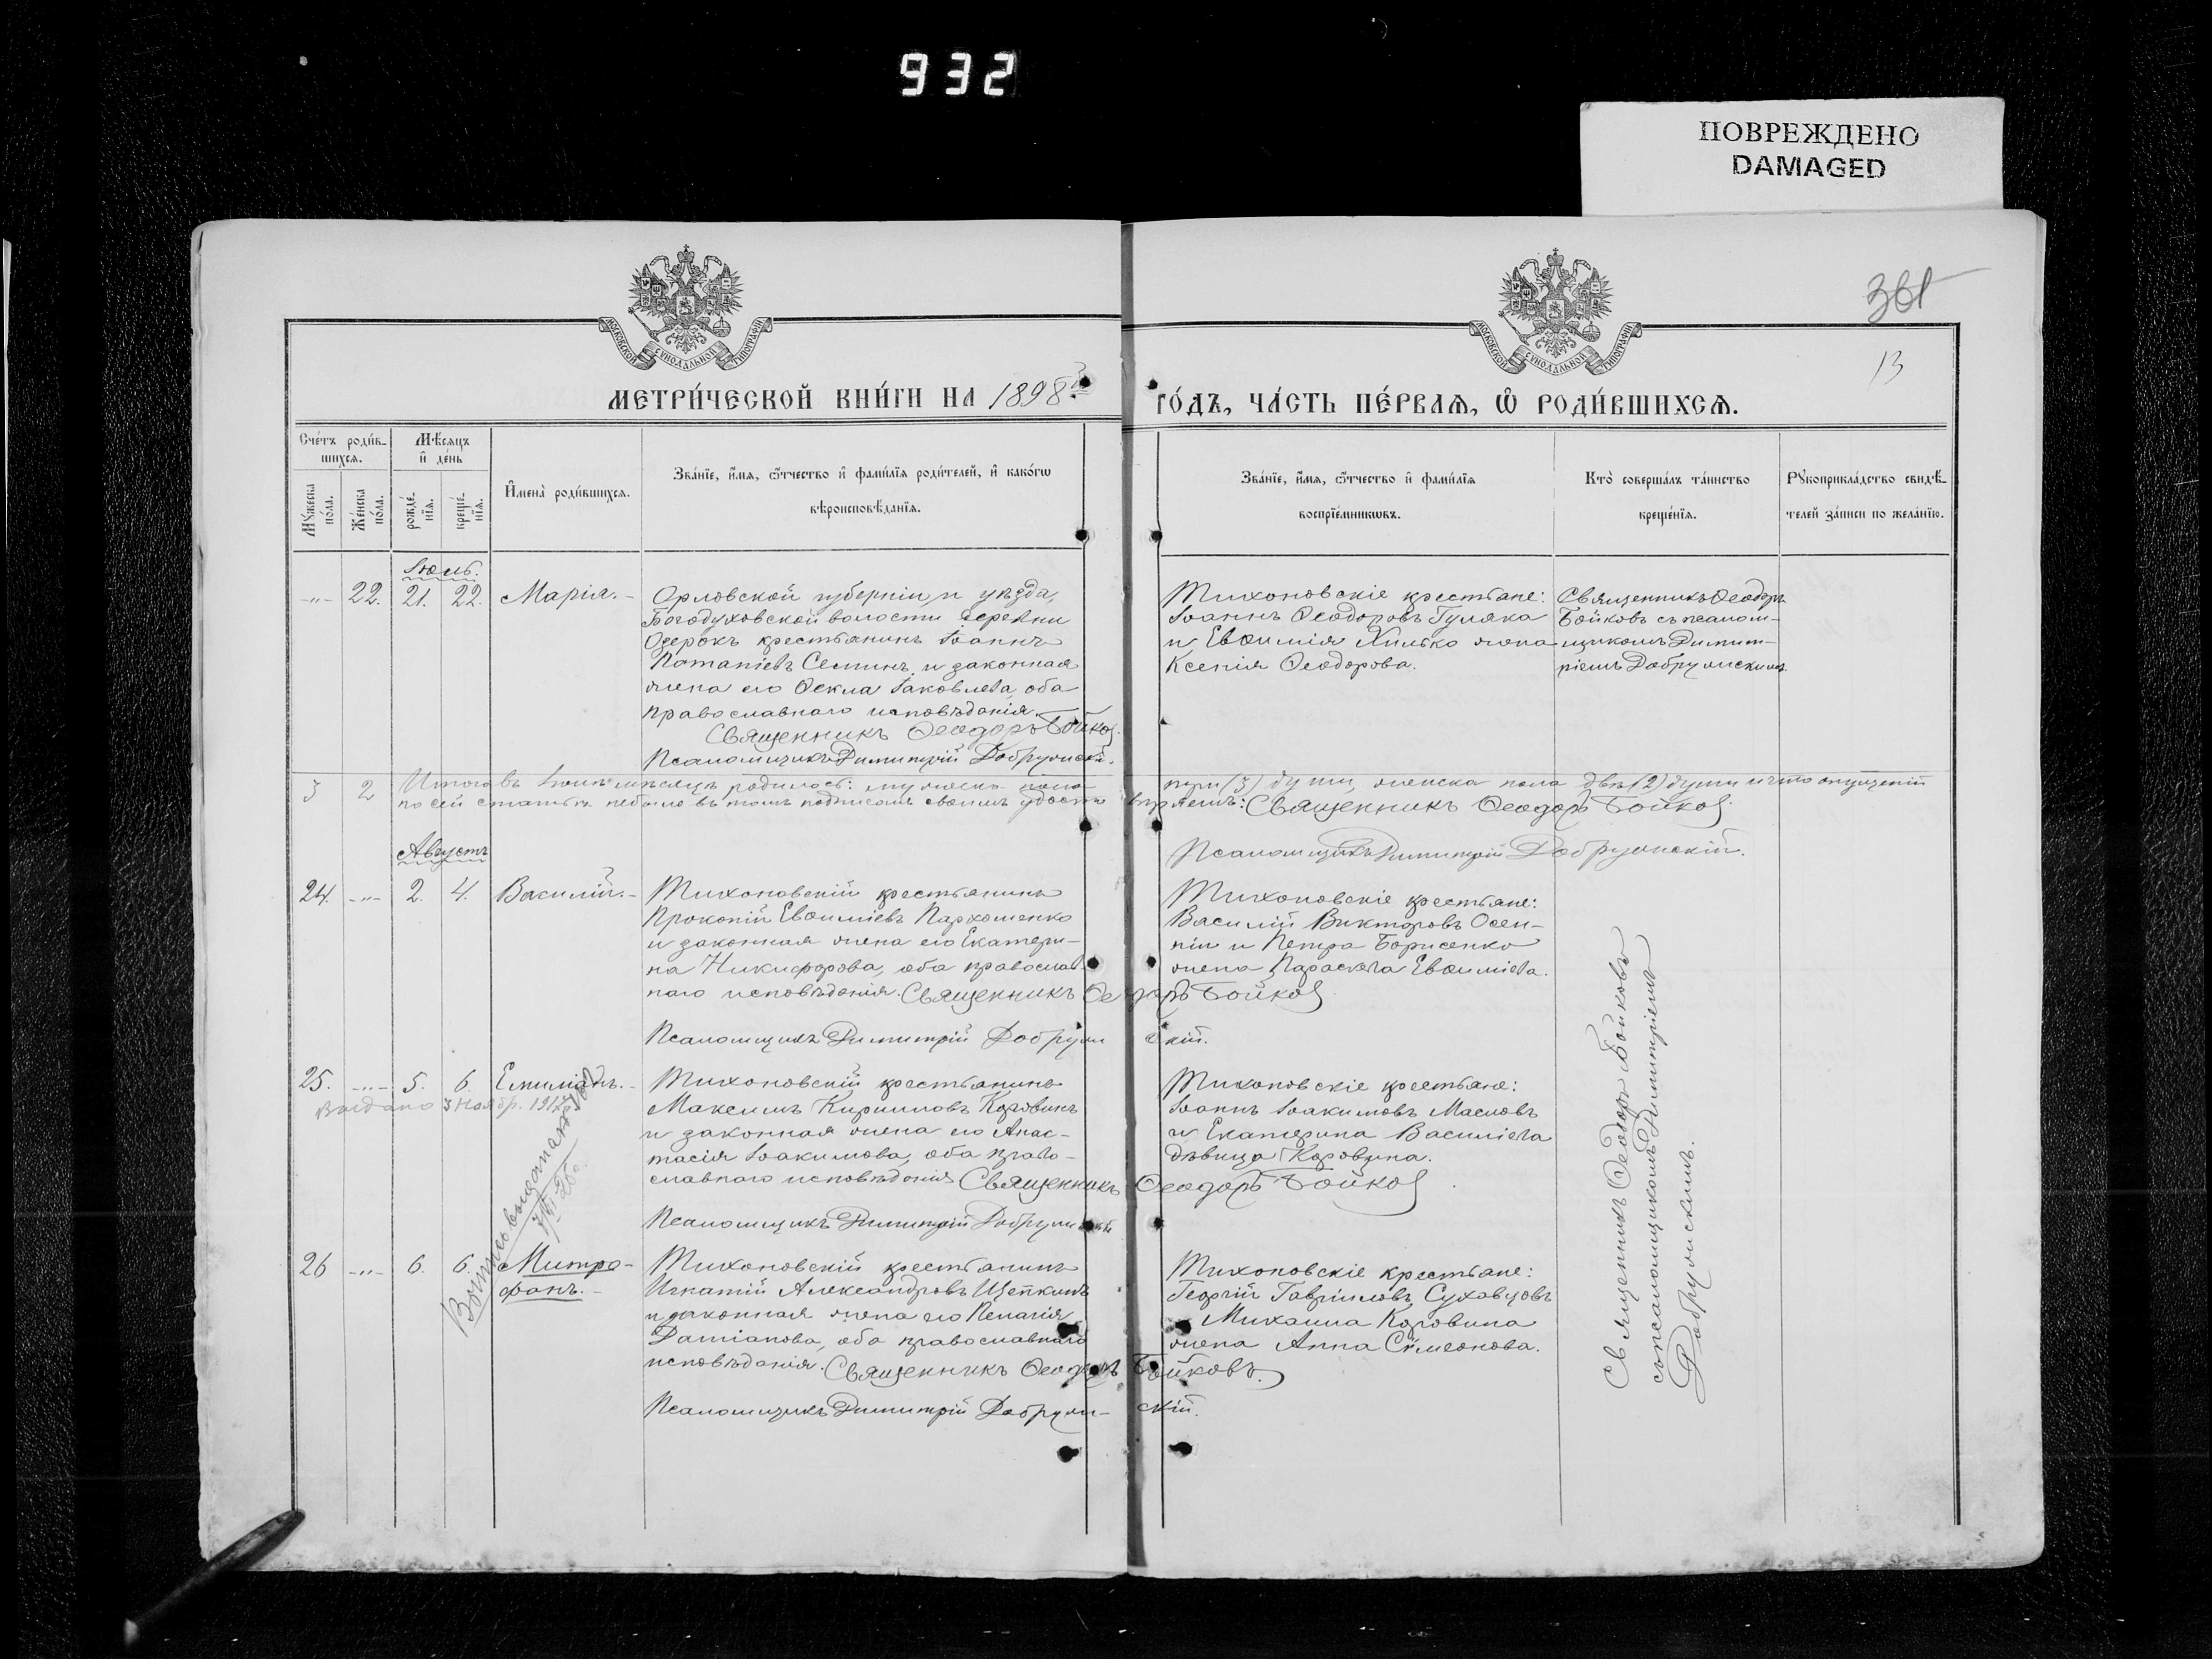 932
ПОВРЕЖДЕНО
DAMAGED
361
13
МОСКОВСКОЙ СѴНОДАЛЬНОЙ ТИПОГРАФІИ
МОСКОВСКОЙ СѴНОДАЛЬНОЙ ТИПОГРАФІИ
МЕТРИ́ЧЕСКОЙ КНИ́ГИ НА 1898й
ГО́ДЪ, ЧА́СТЬ ПЕ́РВАѦ, Ѡ҆ РОДИ́ВШИХСѦ.
Сче́тъ роди́в-
шихсѧ.
Мѣ́сѧцъ
и҆ де́нь
Мꙋ́жеска по́ла.
Же́нска по́ла.
рожде́-нїѧ.
креще́-нїѧ.
И҆мена̀ роди́вшихсѧ.
Зва́нїе, и҆́мѧ, ѻ҆́тчество и҆ фами́лїѧ роди́телей, и҆ како́гѡ
вѣроисповѣ́данїѧ.
Зва́нїе, и҆́мѧ, ѻ҆́тчество и҆ фами́лїѧ
воспрїе́мникѡвъ.
Кто̀ соверша́лъ та́инство
креще́нїѧ.
Рꙋкоприкла́дство свидѣ́-
телей за́писи по жела́нїю.
Іюль.
-"- 22. 21. 22. Марія.-
Орловской губерніи, и уѣзда,
Богодуховской волости деревни
Озерокъ крестьянинъ Іоаннъ
Потапіевъ Семинъ, и законная
жена его Ѳекла Іаковлева, оба
православнаго исповѣданія.
Священникъ Ѳеодоръ Бойков.
Псаломщикъ Димитрій Добружскій.
Тихоновскіе крестьяне:
Іоаннъ Ѳеодоровъ Гуляка
и Евѳимія Хилько жена
Ксенія Ѳеодорова.
Священникъ Ѳеодоръ
Бойковъ съ псалом-
щикомъ Димит-
ріемъ Добружскимъ.
3 2 Итого въ Іюлѣ мѣсяцѣ родилось: мужеска пола
три (3) души, женска пола двѣ (2) души и что опущеній
по сей статьѣ небыло въ томъ подписомъ своимъ удосто
вѣряемъ: Священникъ Ѳеодоръ Бойков
Псаломщикъ Димитрій Добружскій.
Августъ
24. -"- 2. 4. Василій.-
Тихоновскій крестьянинъ
Прокопій Евѳиміевъ Пархоменко
и законная жена его Екатери-
на Никифорова, оба православ-
наго исповѣданія. Священникъ Ѳеодоръ Бойков
Псаломщикъ Димитрій Добружскій.
Тихоновскіе крестьяне:
Василій Викторовъ Осен-
ній и Петра Борисенко
жена Параскева Евѳиміева.
25. -"- 5. 6. Емиліанъ.-
Выдано 3 Ноябр. 1917
Тихоновскій крестьянинъ
Максимъ Кирилловъ Коровинъ
и законная жена его Анас-
тасія Іоакимова, оба право-
славнаго исповѣданія Священникъ Ѳеодоръ Бойков
Псаломщикъ Димитрій Добружскій
Тихоновскіе крестьяне:
Іоаннъ Іоакимовъ Масловъ
и Екатерина Василіева
дѣвица Коровина.
26 -"- 6. 6. Митро-
фанъ.-
Тихоновскій крестьянинъ
Игнатій Александровъ Щепкинъ
и законная жена его Пелагія
Даміанова, оба православнаго
исповѣданія. Священникъ Ѳеодоръ Бойковъ.
Псаломщикъ Димитрій Добруж-скій.
Тихоновскіе крестьяне:
Георгій Гавріиловъ Суховцовъ
Михаила Коровина
жена Анна Сѵмеонова.
Священникъ Ѳеодоръ Бойковъ
съ псаломщикомъ Димитріемъ
Добружскимъ.